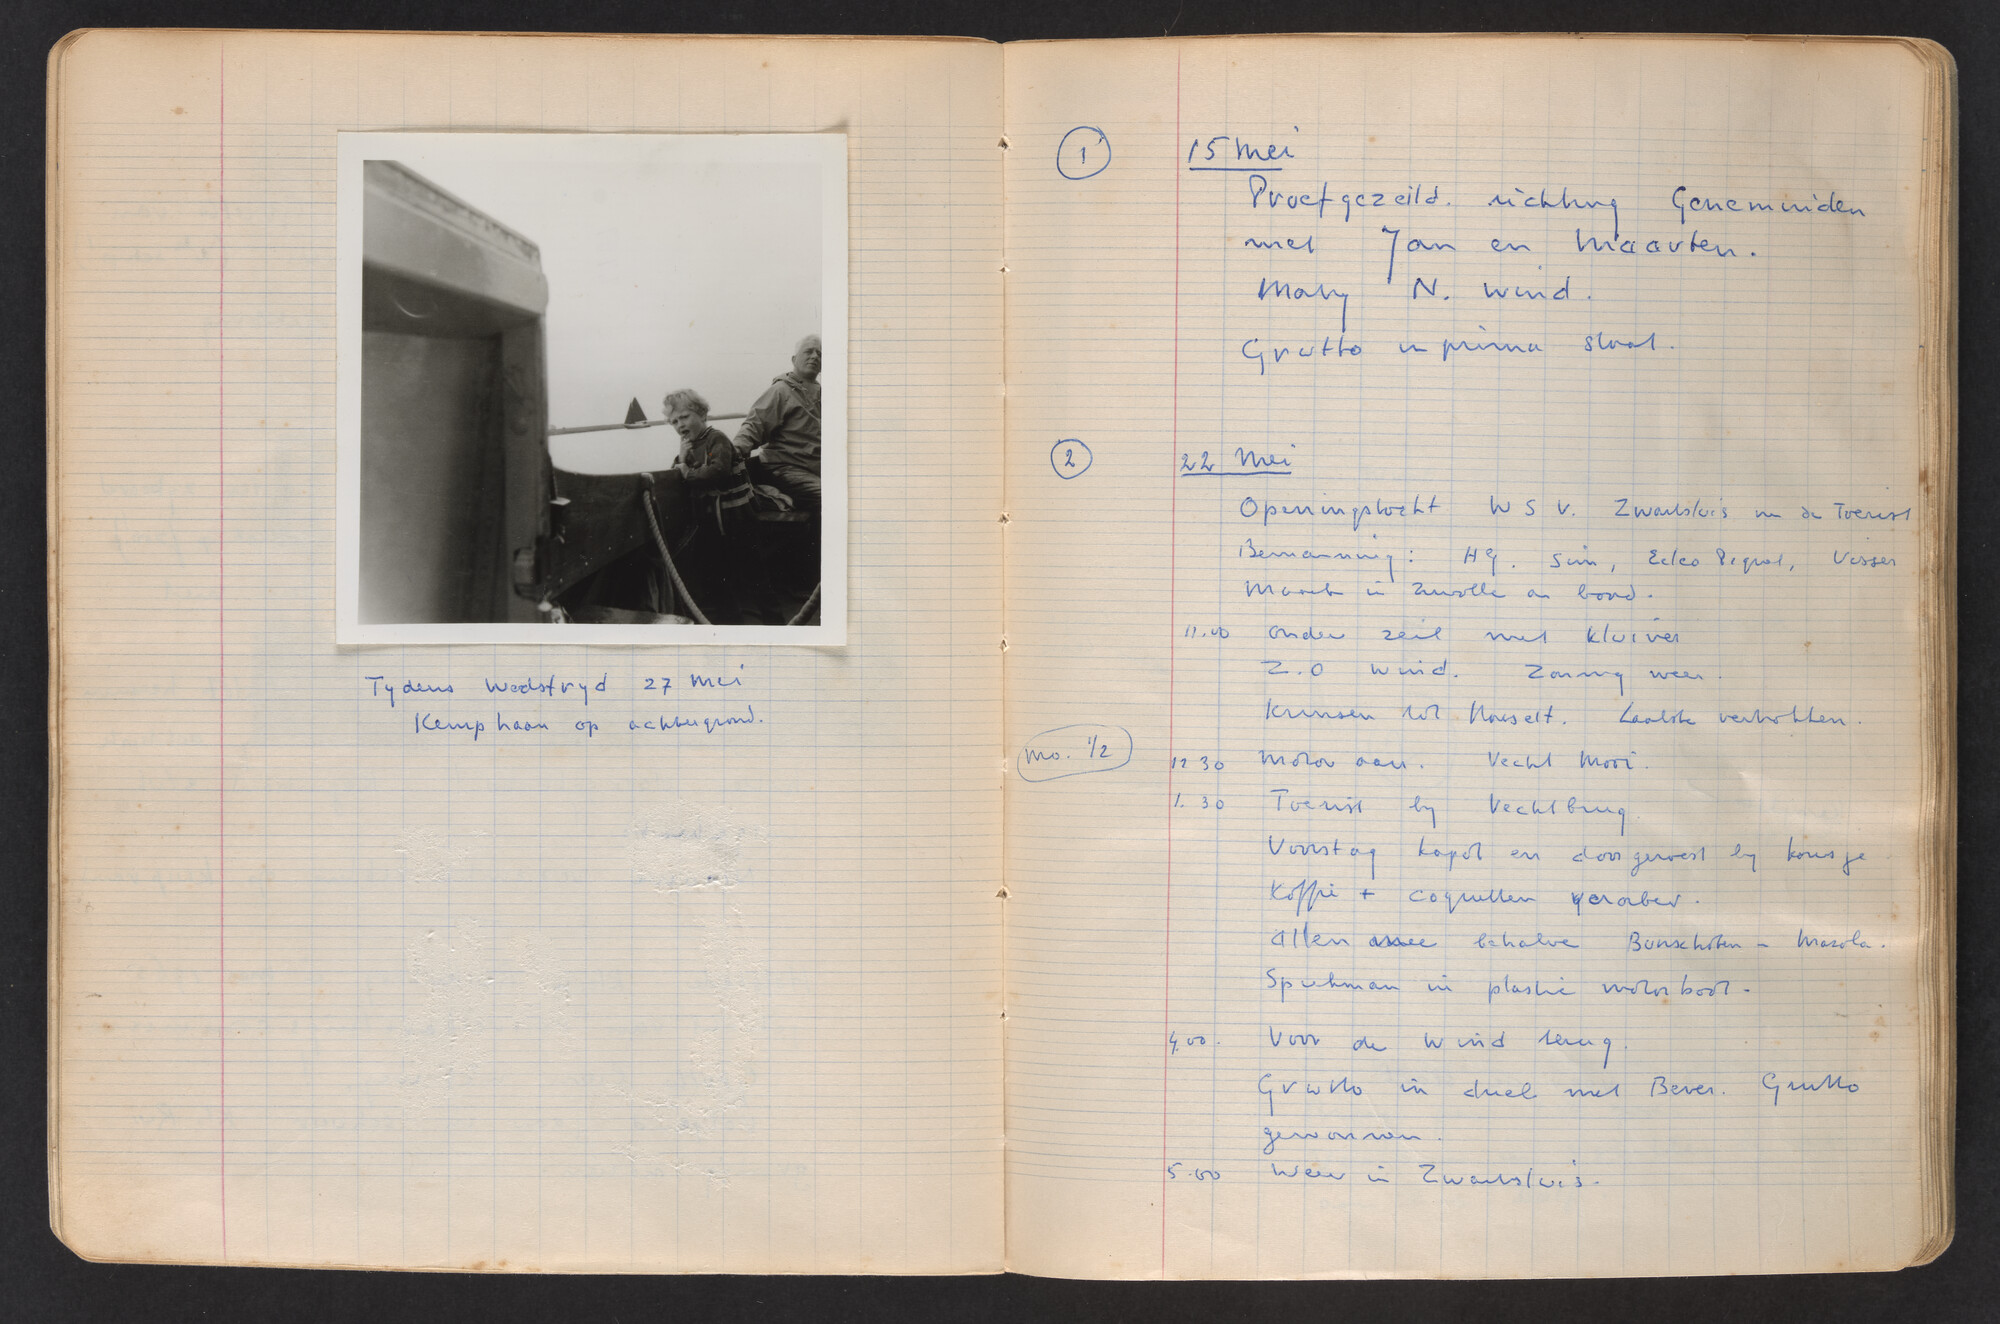 Tydens Wedstryd 27 Mei
Kemphaan op achtergrond.
1
15 Mei
Proefgezeild. richting Genemuiden
met Jan en Maarten.
Matig N. wind.
Grutto in prima staat.
2
22 Mei
Openingstocht W S V. Zwartsluis in de Toerist
Bemanning: Hg. Sim, Eelco, Visser
in Zwolle aan boord.
11.00 onder zeil met kluiver
Z.O wind. Zonnig weer.
Kruisen tot Hasselt. Laatste vertrokken.
mo. 1/2
12 30 Motor aan. Vecht Mooi.
1. 30 Toerist by Vechtbrug
Voorstag kapot en doorgeroest by kousje
Koffie +
Allen mee behalve Bunschoten - Mazola.
in plastic motorboot.
4.00. Voor de wind terug.
Grutto in duel met Bever. Grutto
gewonnen.
5.00 Weer in Zwartsluis.